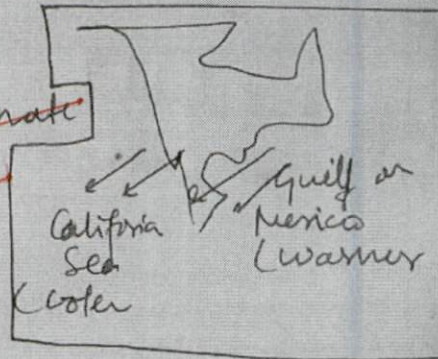 nate
California
Sea
(cooler
Gulf on
Mexico
(warmer